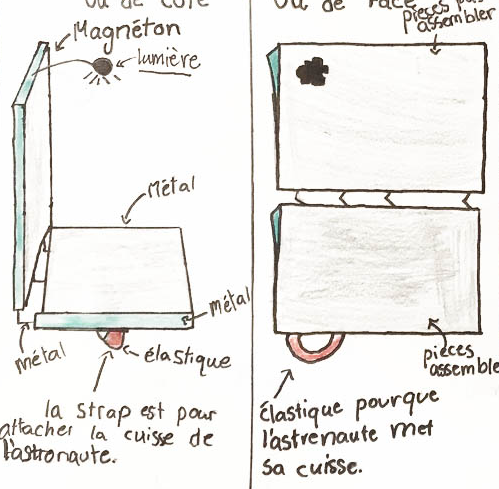 Vu de côté
Magnéton
lumière
Métal
Métal
métal
élastique
la strap est pour
attacher la cuisse de
l'astronaute.
Vu de face
pièces pas
assembler
pièces
assemble
élastique pourque
l'astrenaute met
sa cuisse.